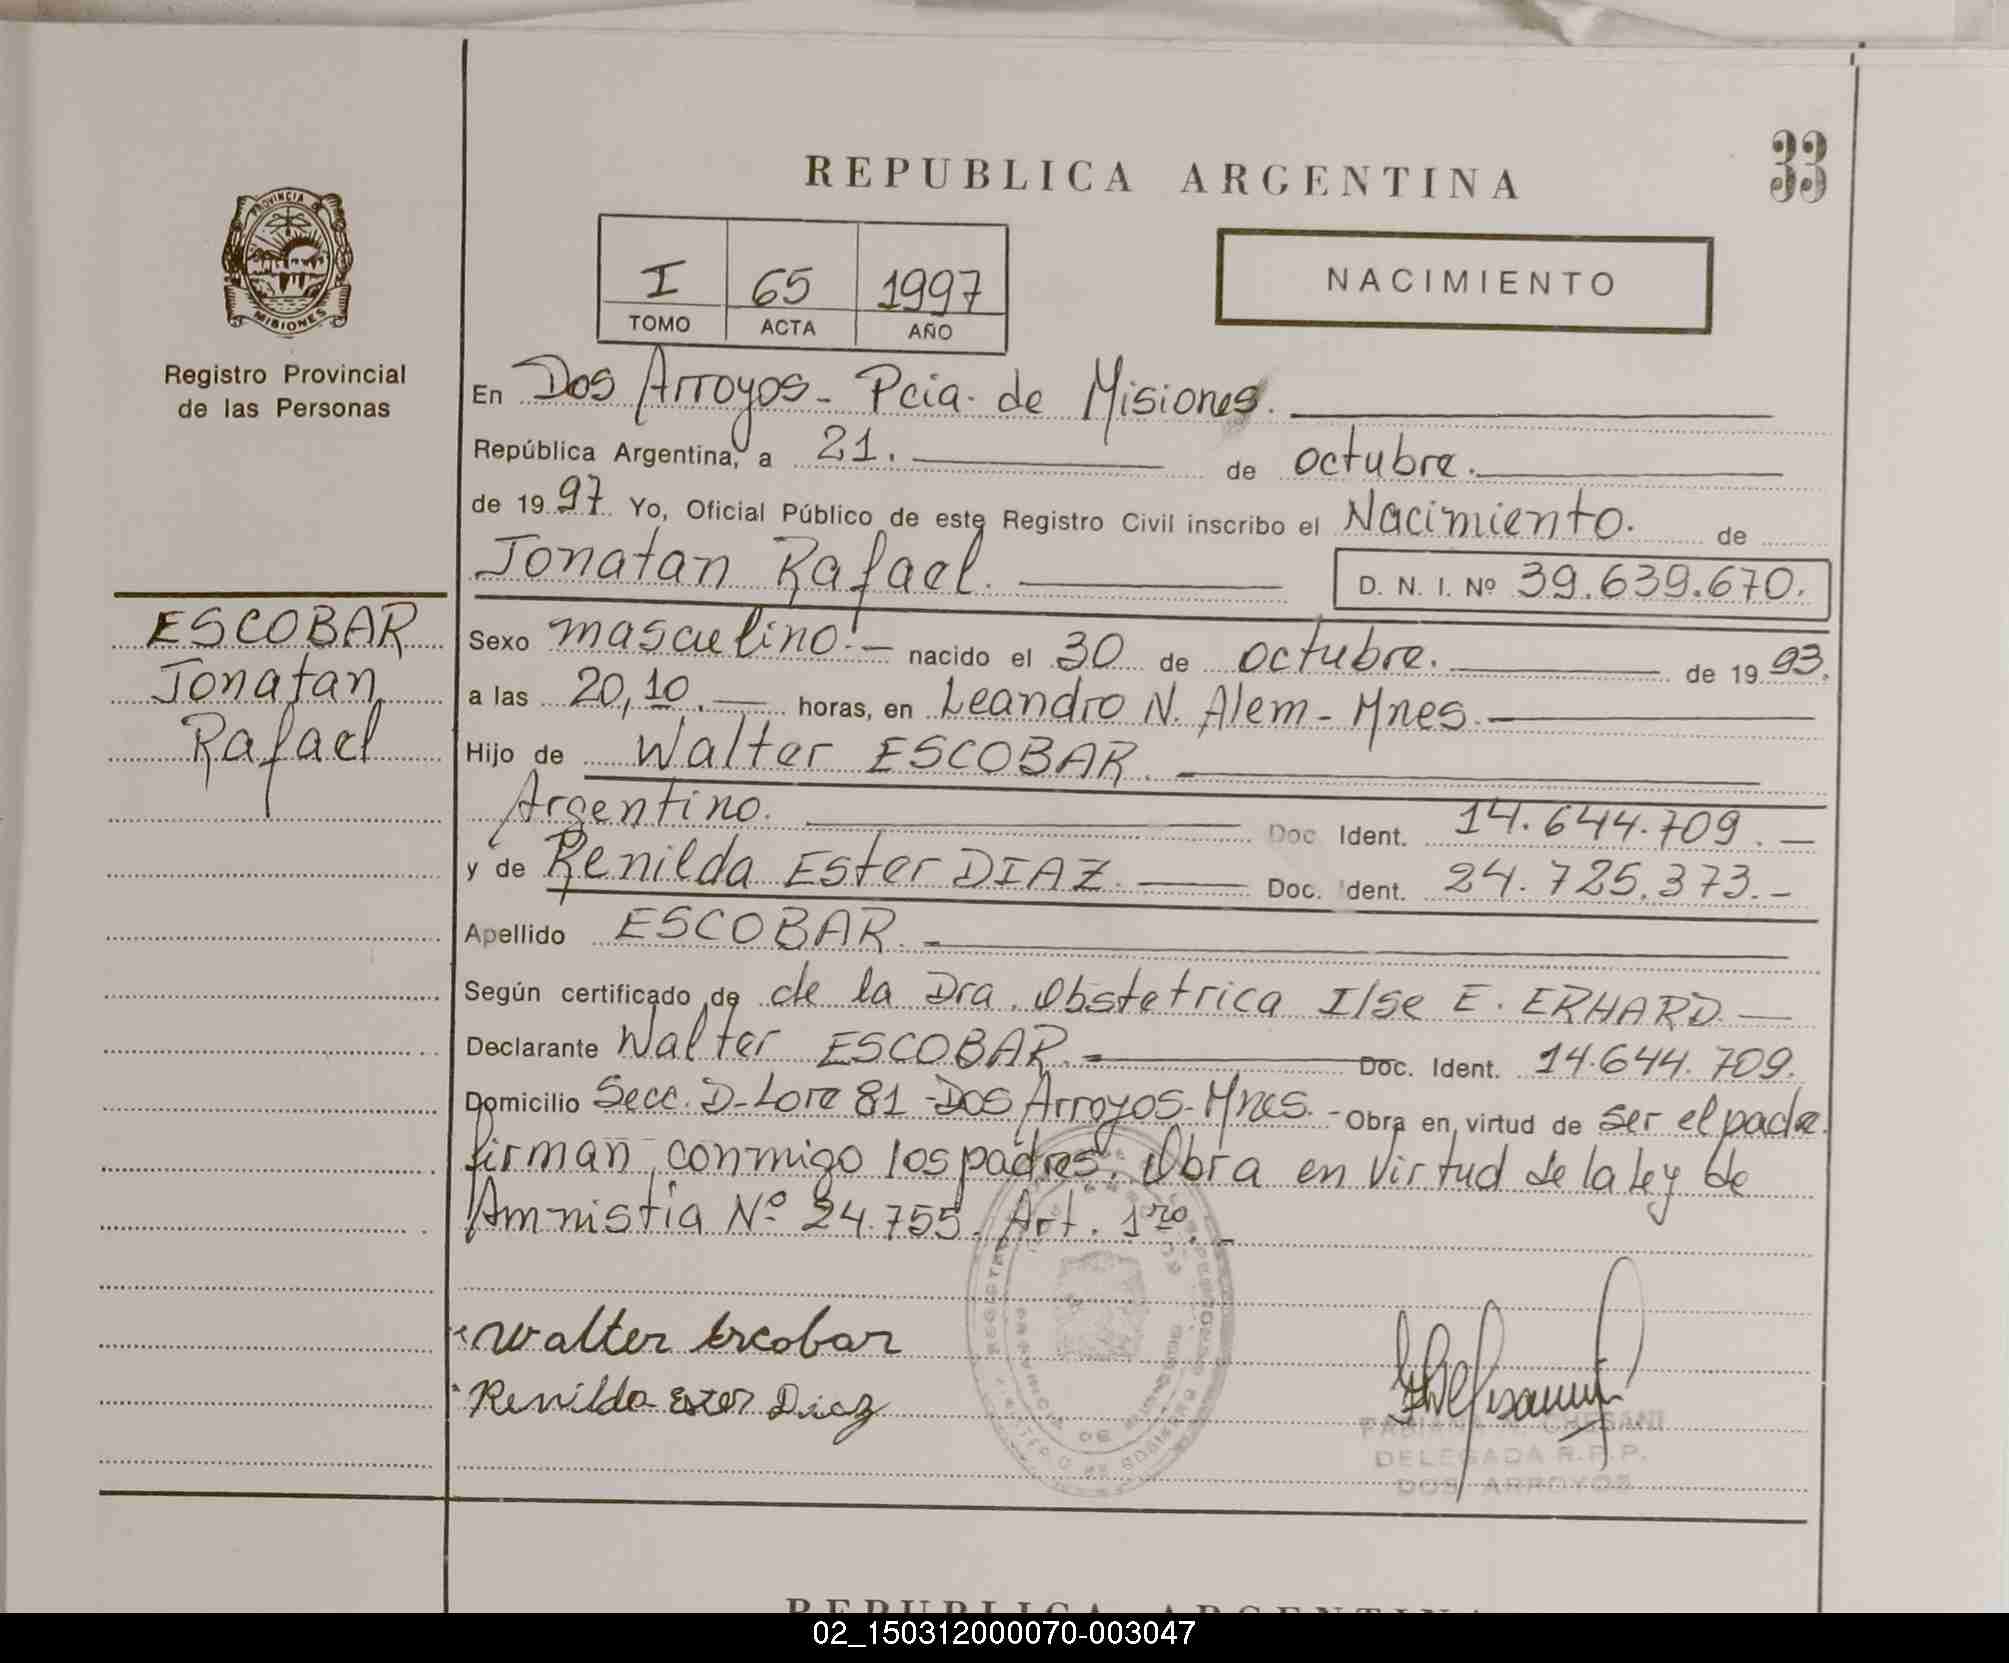 33
REPUBLICA ARGENTINA
PROVINCIA DE
MISIONES
Registro Provincial
de las Personas
I 65 1997
TOMO ACTA AÑO
NACIMIENTO
En Dos Arroyos - Pcia. de Misiones.
República Argentina, a 21. de octubre.
de 1997 Yo, Oficial Público de este Registro Civil inscribo el Nacimiento. de
Jonatan Rafael. D. N. I. Nº 39.639.670.
ESCOBAR
Jonatan
Rafael
Sexo masculino.- nacido el 30 de octubre. de 1993.
a las 20,10. horas, en Leandro N. Alem - Mnes.
Hijo de Walter ESCOBAR.
Argentino. Doc Ident. 14.644.709.-
y de Renilda Ester DIAZ. Doc. Ident. 24.725.373.-
Apellido ESCOBAR.
Según certificado de de la Dra. Obstetrica Ilse E. ERHARD.
Declarante Walter ESCOBAR. Doc. Ident. 14.644.709.
Domicilio Secc. D-Lote 81 - Dos Arroyos - Mnes. - Obra en virtud de ser el padre.
firman conmigo los padres. Obra en virtud de la ley de
Amnistia Nº 24.755. Art. 1ro.-
Walter Escobar
Renilda Ester Diaz
FABIANA CHESANI
DELEGADA R.P.P.
DOS ARROYOS
REPUBLICA ARGENTINA
02_150312000070-003047